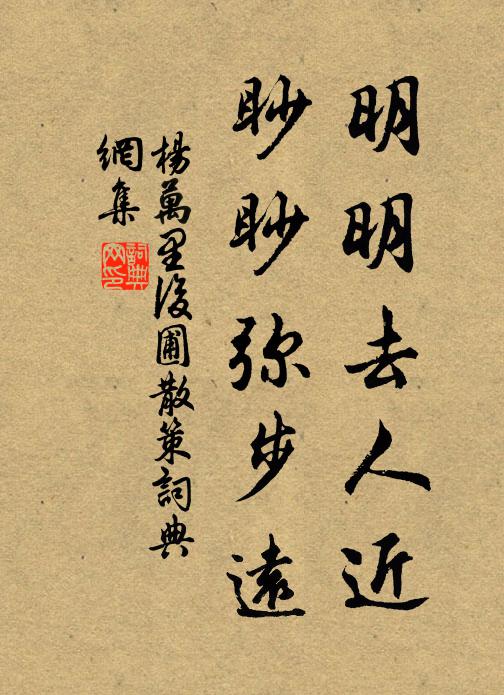 明明去人近
眇眇弥步遠
楊萬里後圃散策詞典
網集
詞典網印